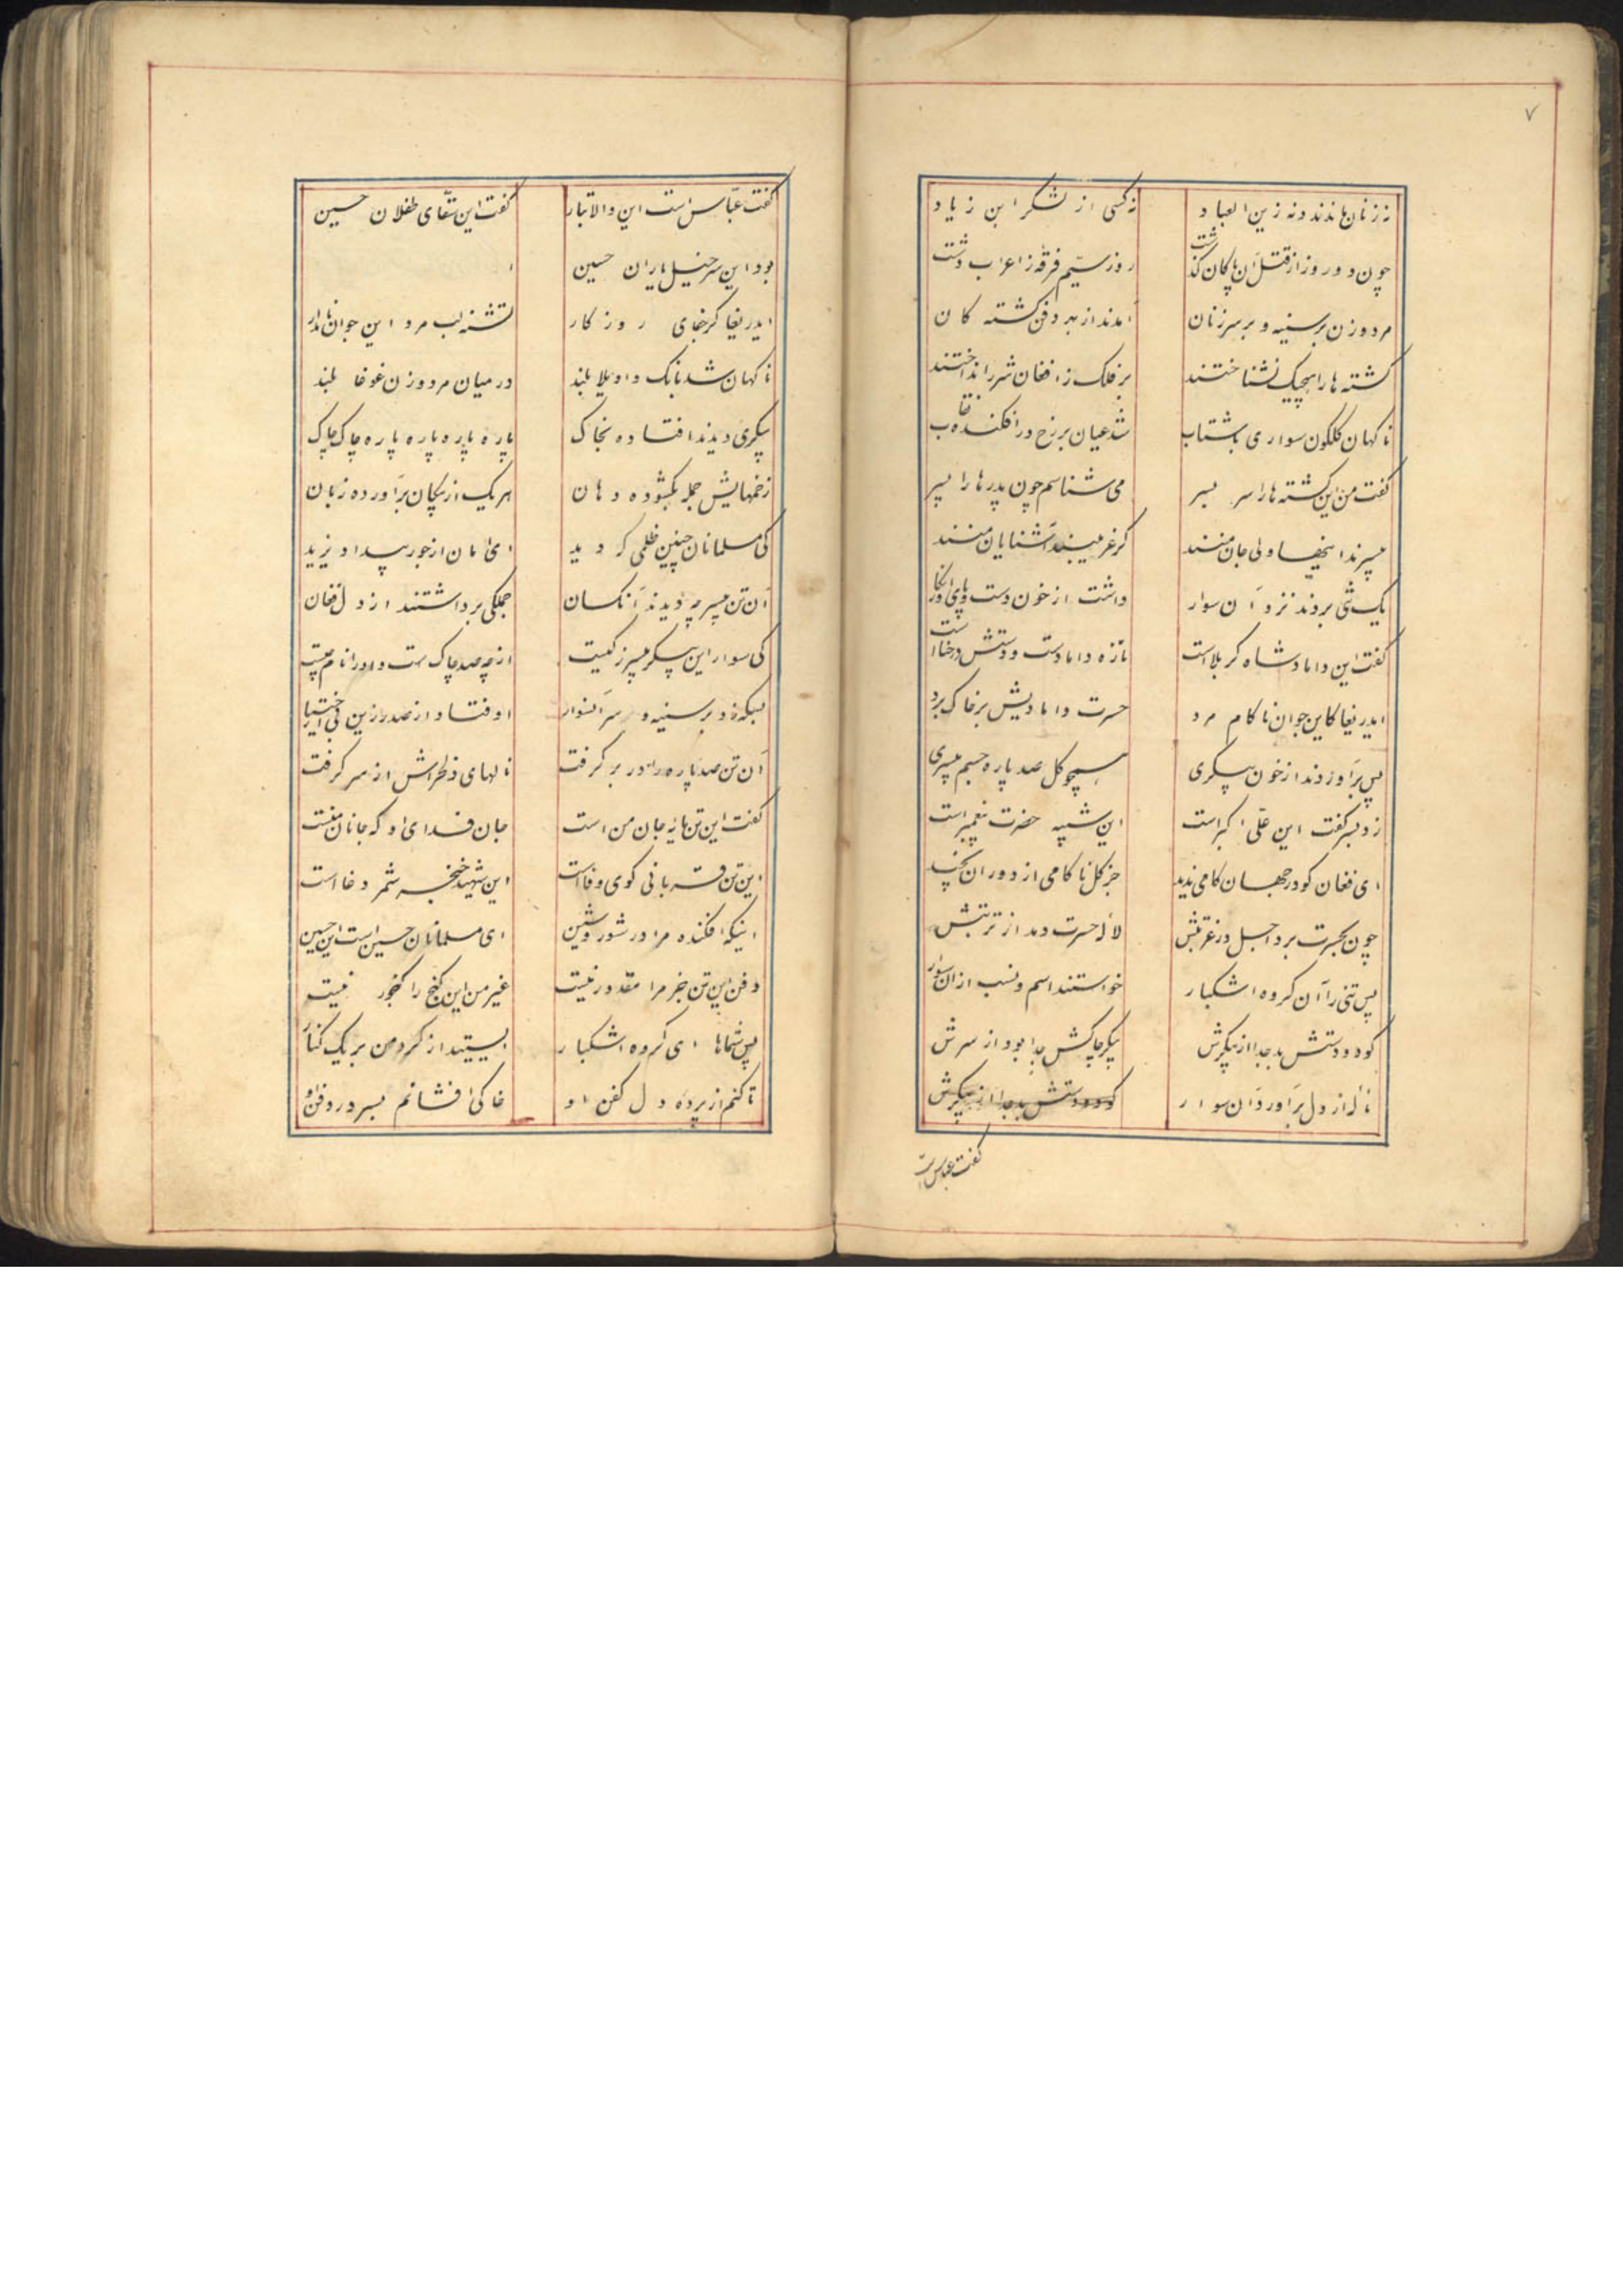 ۷
نه زنان ماندند و نه زین العباد نه کسی از لشکر ابن زیاد
چون دو روز از قتل آن پاکان گذشت روز سیّم فرقه ز اعراب دشت
مرد و زن بر سینه و بر سر زنان آمدند از بهر دفن کشته کان
کشته ها را هیچیک نشناختند بر فلک ز افغان شرر انداختند
ناکهان کلکون سواری باشتاب شد عیان بر رخ در افکنده نقاب
کفت من این کشته ها را سر بسر می شناسم چون پدرها را پسر
بسپرند اینجا ولی جان منند کر غریبند آشنایان منند
یک تنی بردند نزد آن سوار داشت از خون دست و پای در نکار
کفت این داماد شاه کربلا است تازه داماد است و دستش در حنا است
ایدریغا کاین جوان ناکام مرد حسرت دامادیش بر خاک برد
پس برآوردند از خون پیکری همچو کل صد پاره جسم بیسری
زد بسر کفت این علی اکبر است این شبیه حضرت پیغمبر است
ای فغان کو در جهان کامی ندید جز کل ناکامی از دوران نچید
چون بحسرت برد اجل در غربتش لاله حسرت دمد از تربتش
پس تنی را آن کروه اشکبار خواستند اسم و نسب از آن سوار
کو دو دستش بد جدا از پیکرش پیکر چاکش جدا بود از سرش
ناله از دل برآورد آن سوار کو دو دستش بد جدا از پیکرش
کفت عباس است
کفت عبّاس است این والاتبار کفت این سقّای طفلان حسین
بود این سرخیل یاران حسین
ایدریغا کز جفای روزکار تشنه لب مرد این جوان نامدار
ناکهان شد بانک واویلا بلند در میان مرد و زن غوغا بلند
پیکری دیدند افتاده بخاک پاره پاره پاره پاره چاک چاک
زخمهایش جمله بکشوده دهان هر یک از پیکان برآورده زبان
کی مسلمانان چنین ظلمی که دید ای امان از جور بیداد یزید
آن تن بیسر چو دیدند آنکسان جملکی برداشتند از دل فغان
کی سوار این پیکر بیسر ز کیست از چه صد چاک است و او را نام چیست
بسکه زد بر سینه و سر آنسوار اوفتاد از صدر زین بی اختیار
آن تن صد پاره را در بر کرفت نالهای دلخراش از سر کرفت
کفت این تن مایه جان من است جان فدای او که جانان منست
این تن قربانی کوی وفا است این شهید خنجر شمر دغا است
اینکه افکنده مرا در شور و شین ای مسلمانان حسین است این حسین
دفن این تن جز مرا مقدور نیست غیر من این کنج را کنجور نیست
پس شماها ای کروه اشکبار ایستید از کرد من بر یک کنار
تا کنم از پرده دل کفن او خاکی افشانم بسر در دفن او